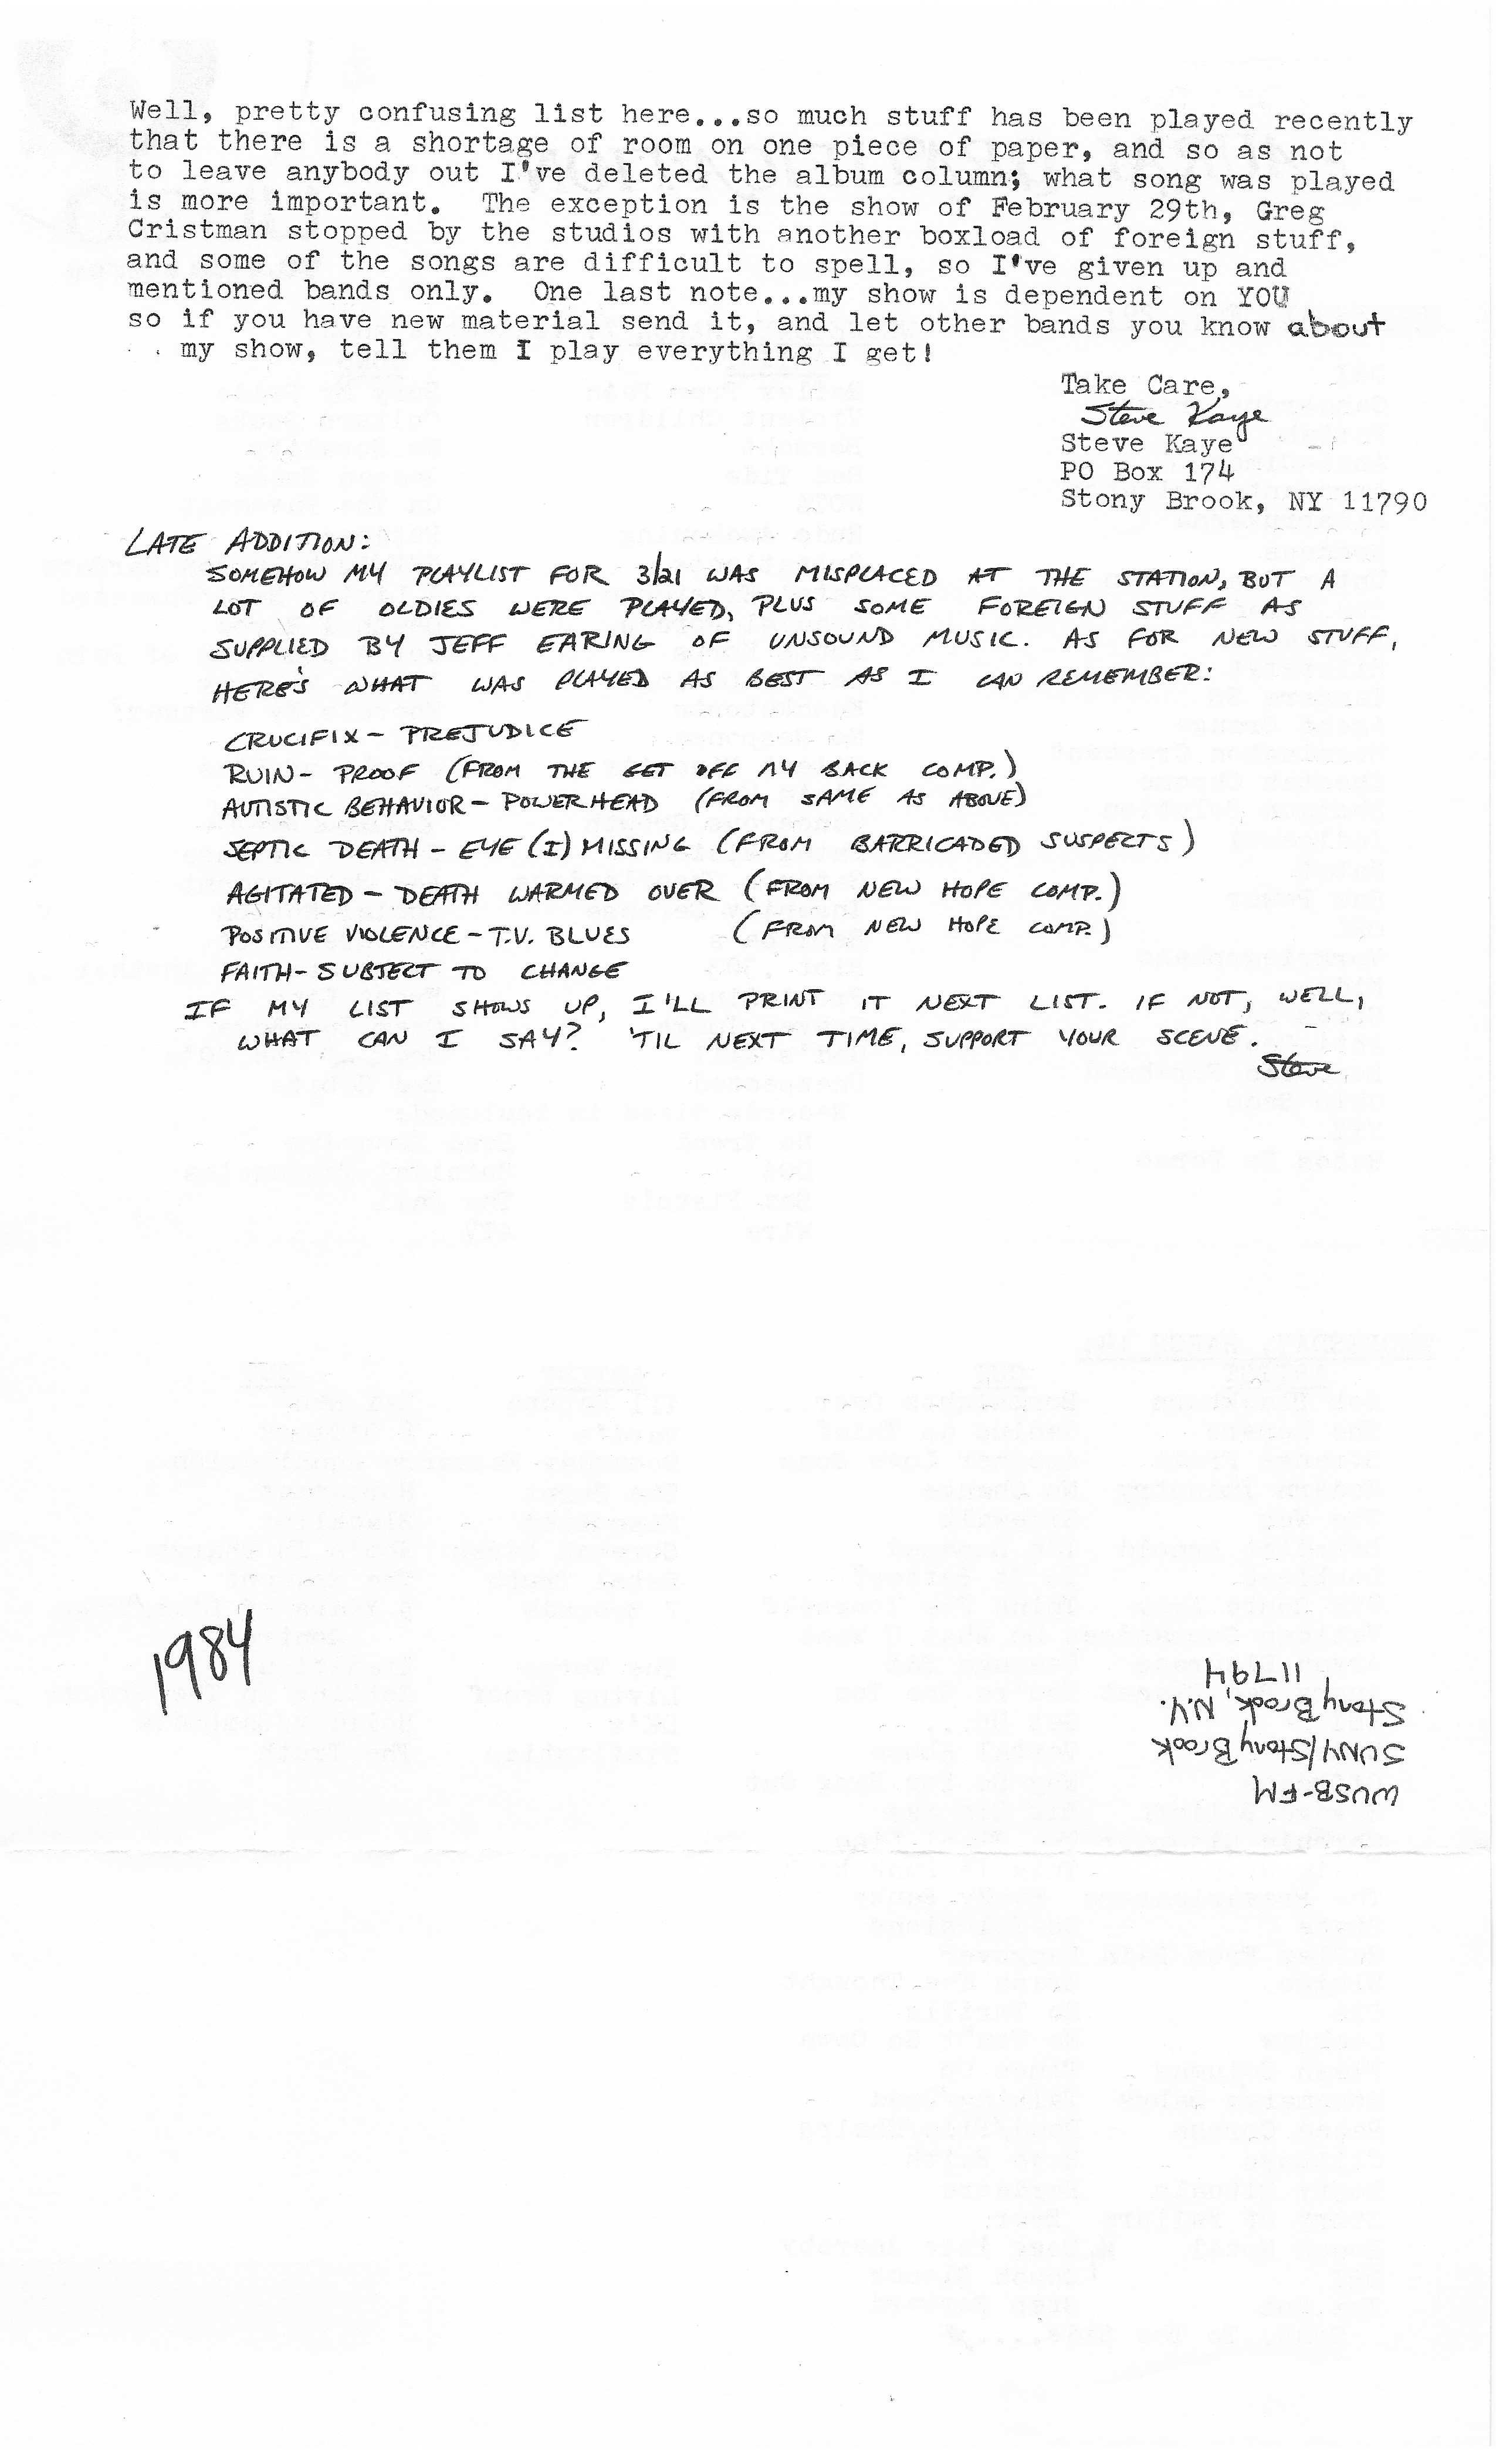 Well, pretty confusing list here...so much stuff has been played recently
that there is a shortage of room on one piece of paper, and so as not
to leave anybody out I've deleted the album column; what song was played
is more important. The exception is the show of February 29th, Greg
Cristman stopped by the studios with another boxload of foreign stuff,
and some of the songs are difficult to spell, so I've given up and
mentioned bands only. One last note...my show is dependent on YOU
so if you have new material send it, and let other bands you know about
my show, tell them I play everything I get!
Take Care,
Steve Kaye
Steve Kaye
PO Box 174
Stony Brook, NY 11790
LATE ADDITION:
SOMEHOW MY PLAYLIST FOR 3/21 WAS MISPLACED AT THE STATION, BUT A
LOT OF OLDIES WERE PLAYED, PLUS SOME FOREIGN STUFF AS
SUPPLIED BY JEFF EARING OF UNSOUND MUSIC. AS FOR NEW STUFF,
HERE'S WHAT WAS PLAYED AS BEST AS I CAN REMEMBER:
CRUCIFIX - PREJUDICE
RUIN - PROOF (FROM THE GET OFF MY BACK COMP.)
AUTISTIC BEHAVIOR - POWERHEAD (FROM SAME AS ABOVE)
SEPTIC DEATH - EYE (I) MISSING (FROM BARRICADED SUSPECTS)
AGITATED - DEATH WARMED OVER (FROM NEW HOPE COMP.)
POSITIVE VIOLENCE - T.V. BLUES (FROM NEW HOPE COMP.)
FAITH - SUBJECT TO CHANGE
IF MY LIST SHOWS UP, I'LL PRINT IT NEXT LIST. IF NOT, WELL,
WHAT CAN I SAY? 'TIL NEXT TIME, SUPPORT YOUR SCENE.
Steve
1984
WUSB-FM
SUNY/Stony Brook
Stony Brook, N.Y.
11794